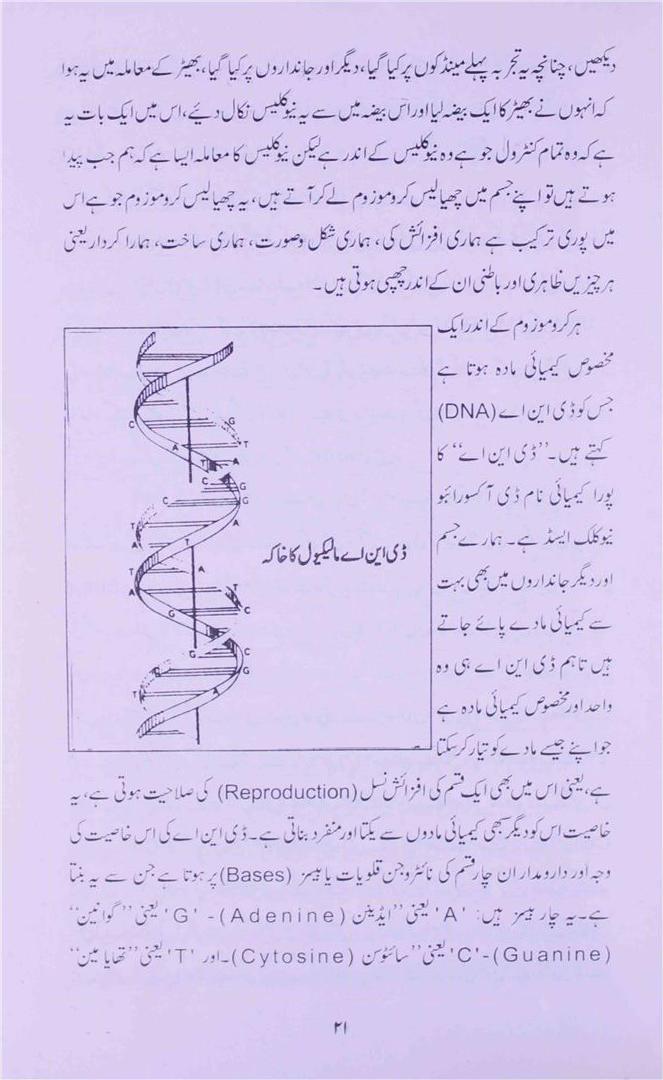 دیکھیں، چنانچہ یہ تجربہ پہلے مینڈکوں پر کیا گیا، دیگر اور جانداروں پر کیا گیا، بھیڑ کے معاملہ میں یہ ہوا
کہ انہوں نے بھیڑ کا ایک بیضہ لیا اور اس بیضہ میں سے یہ نیوکلیس نکال دیئے، اس میں ایک بات یہ
ہے کہ وہ تمام کنٹرول جو ہے وہ نیوکلیس کے اندر ہے لیکن نیوکلیس کا معاملہ ایسا ہے کہ ہم جب پیدا
ہوتے ہیں تو اپنے جسم میں چھیالیس کروموزوم لے کر آتے ہیں، یہ چھیالیس کروموزوم جو ہے اس
میں پوری ترکیب ہے ہماری افزائش کی، ہماری شکل وصورت، ہماری ساخت، ہمارا کردار یعنی
ہر چیزیں ظاہری اور باطنی ان کے اندر چھپی ہوتی ہیں۔
ہر کروموزوم کے اندر ایک
مخصوص کیمیائی مادہ ہوتا ہے
جس کو ڈی این اے (DNA)
کہتے ہیں۔ ”ڈی این اے“ کا
پورا کیمیائی نام ڈی آکسورائبو
نیوکلک ایسڈ ہے۔ ہمارے جسم
اور دیگر جانداروں میں بھی بہت
سے کیمیائی مادے پائے جاتے
ہیں تاہم ڈی این اے ہی وہ
واحد اور مخصوص کیمیائی مادہ ہے
جو اپنے جیسے مادے کو تیار کر سکتا
ڈی این اے مالیکیول کا خاکہ
ہے، یعنی اس میں بھی ایک قسم کی افزائش نسل (Reproduction) کی صلاحیت ہوتی ہے، یہ
خاصیت اس کو دیگر سبھی کیمیائی مادوں سے یکتا اور منفرد بناتی ہے۔ ڈی این اے کی اس خاصیت کی
وجہ اور دارومدار ان چار قسم کی نائٹروجن قلویات یا بیسز (Bases) پر ہوتا ہے جن سے یہ بنتا
ہے۔ یہ چار بیسز ہیں: 'A' یعنی ”ایڈینن (Adenine)۔ 'G' یعنی ”گوانین“
(Guanine)۔'C' یعنی ”سائٹوسن (Cytosine)۔اور 'T' یعنی ”تھایا مین“
۲۱